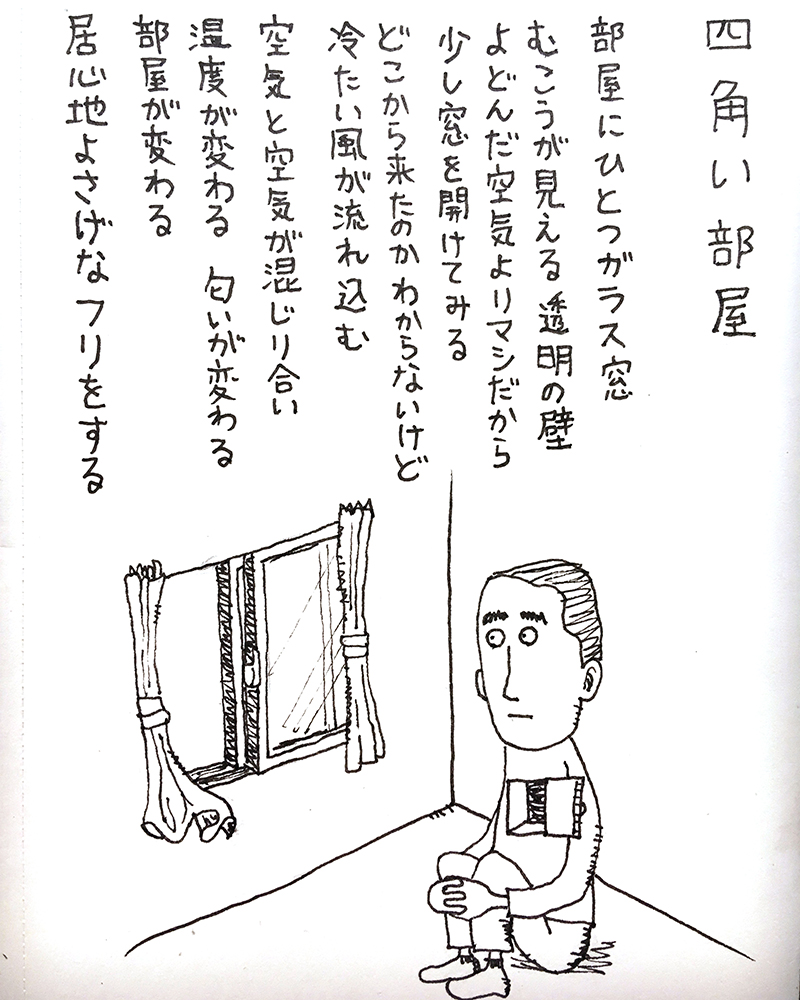 四角い部屋
部屋にひとつガラス窓
むこうが見える 透明の壁
よどんだ空気よりマシだから
少し窓を開けてみる
どこから来たのかわからないけど
冷たい風が流れ込む
空気と空気が混じり合い
温度が変わる 匂いが変わる
部屋が変わる
居心地よさげなフリをする